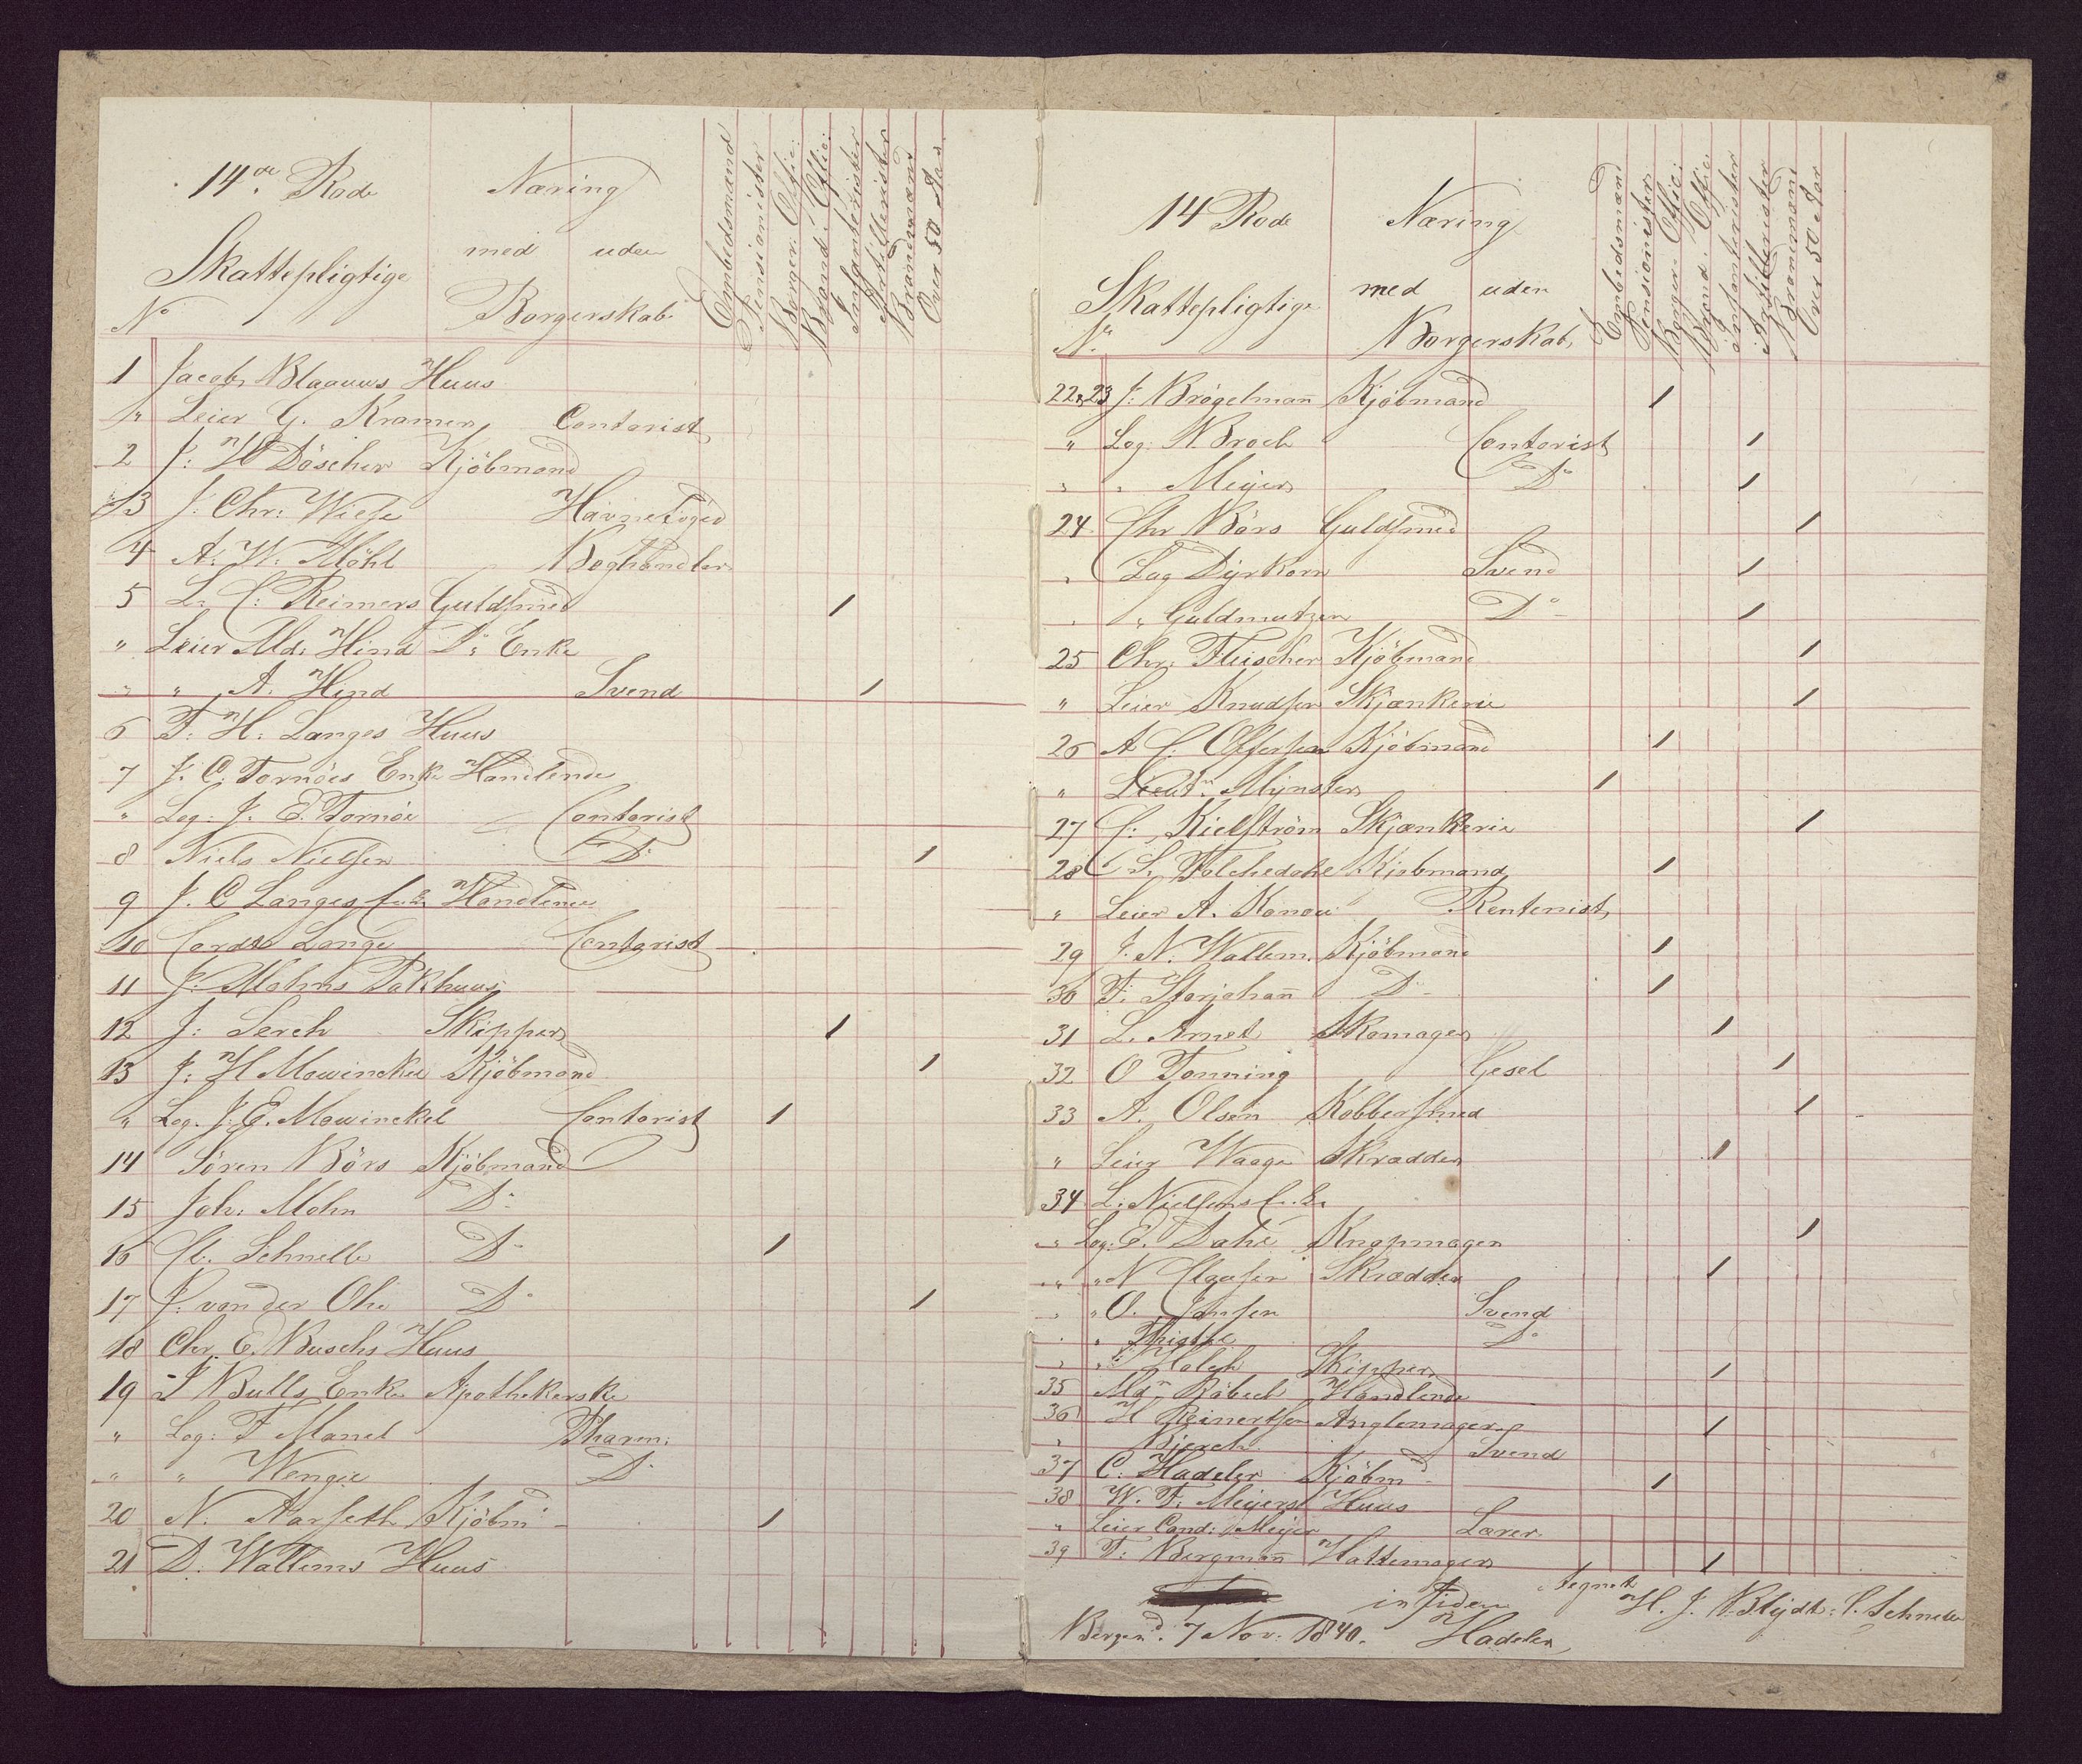 14de Rode Næring
med uden
Skattepligtige Borgerskab
No
Embedsmænd
Pensionister
Borger. Offic:
Brand. Offic:
Infanterister
Artillerister
Brandmænd
Over 50 Aar
1 Jacob Blaauws Huus
" Leier G. Kramer Contorist
2 J: H Döscher Kjöbmand
3 J. Chr: Wiese Havnefoged
4 A. W. Möhl Boghandler
5 L. C: Reimers Guldsmed 1
" Leier Md. Hind Do Enke
" " A. Hind Svend 1
6 F. H. Langes Huus
7 J. C. Tornöes Enke Handlende
" Log: J. E. Tornöe Contorist
8 Niels Nielsen Do 1
9 J. C Langes Handlende
10 Cordt Lange Contorist
11 J. Mohns Pakhuus
12 J: Lerch Skipper 1
13 J: H Mowinckel Kjöbmand 1
" Log. J. E. Mowinckel Contorist 1
14 Sören Börs Kjöbmand
15 Joh: Mohn Do
16 Cl. Schnelle Do 1
17 J: von der Ohe Do 1
18 Chr. E. Buschs Huus
19 J Bulls Enke Apothekerske
" Log: F Manel Pharm:
" " Wenger Do
20 N. Aarseth Kjöbmd 1
21 D. Wallems Huus
14 Rode Næring
med uden
Skattepligtige Borgerskab
No
Embedsmænd
Pensionister
Borger. Offic:
Brand. Offic:
Infanterister
Artillerister
Brandmænd
Over 50 Aar
22 & 23 J: Brögelmann Kjöbmand 1
" Log. Broch Contorist 1
" " Meyer Do 1
24 Chr Börs Guldsmed 1
" Log Dyrkorn Svend 1
" " Guldmutzen Do 1
25 Chr. Fleischer Kjöbmand 1
" Leier Knudsen Skjænkerie 1
26 A C. Offersen Kjöbmand 1
" Lieutn Mynster 1
27 C. Kielström Skjænkerie 1
28 C S. Falchedahl Kjöbmand 1
" Leier A. Konow Rentenist
29 J. N. Wallem. Kjöbmand 1
30 F. Storjohann Do 1
31 L. Arnet Skomager 1
32 O Tonning Gesel 1
33 A. Olsen Kobbersmed 1
" Leier Waage Skrædder 1
34 L. Nielsens
" Log: E. Dahl Knapmager 1
" " N Claasen Skrædder 1
" " O. Jansen Svend
" " Do
" " Holch Skipper 1
35 Mdm Röbech Handlende
36 H Reinertsen Anglemager 1
" Bjerch Svend
37 C. Hadeler Kjöbmd 1
38 W. F. Meyers Huus
" Leier Cand: Meyer Lærer
39 F. Bergmann Hattemager 1
in fidem tegnet H. J. Blydt: C. Schnelle
Bergen d. 7 Nov. 1840. Hadeler